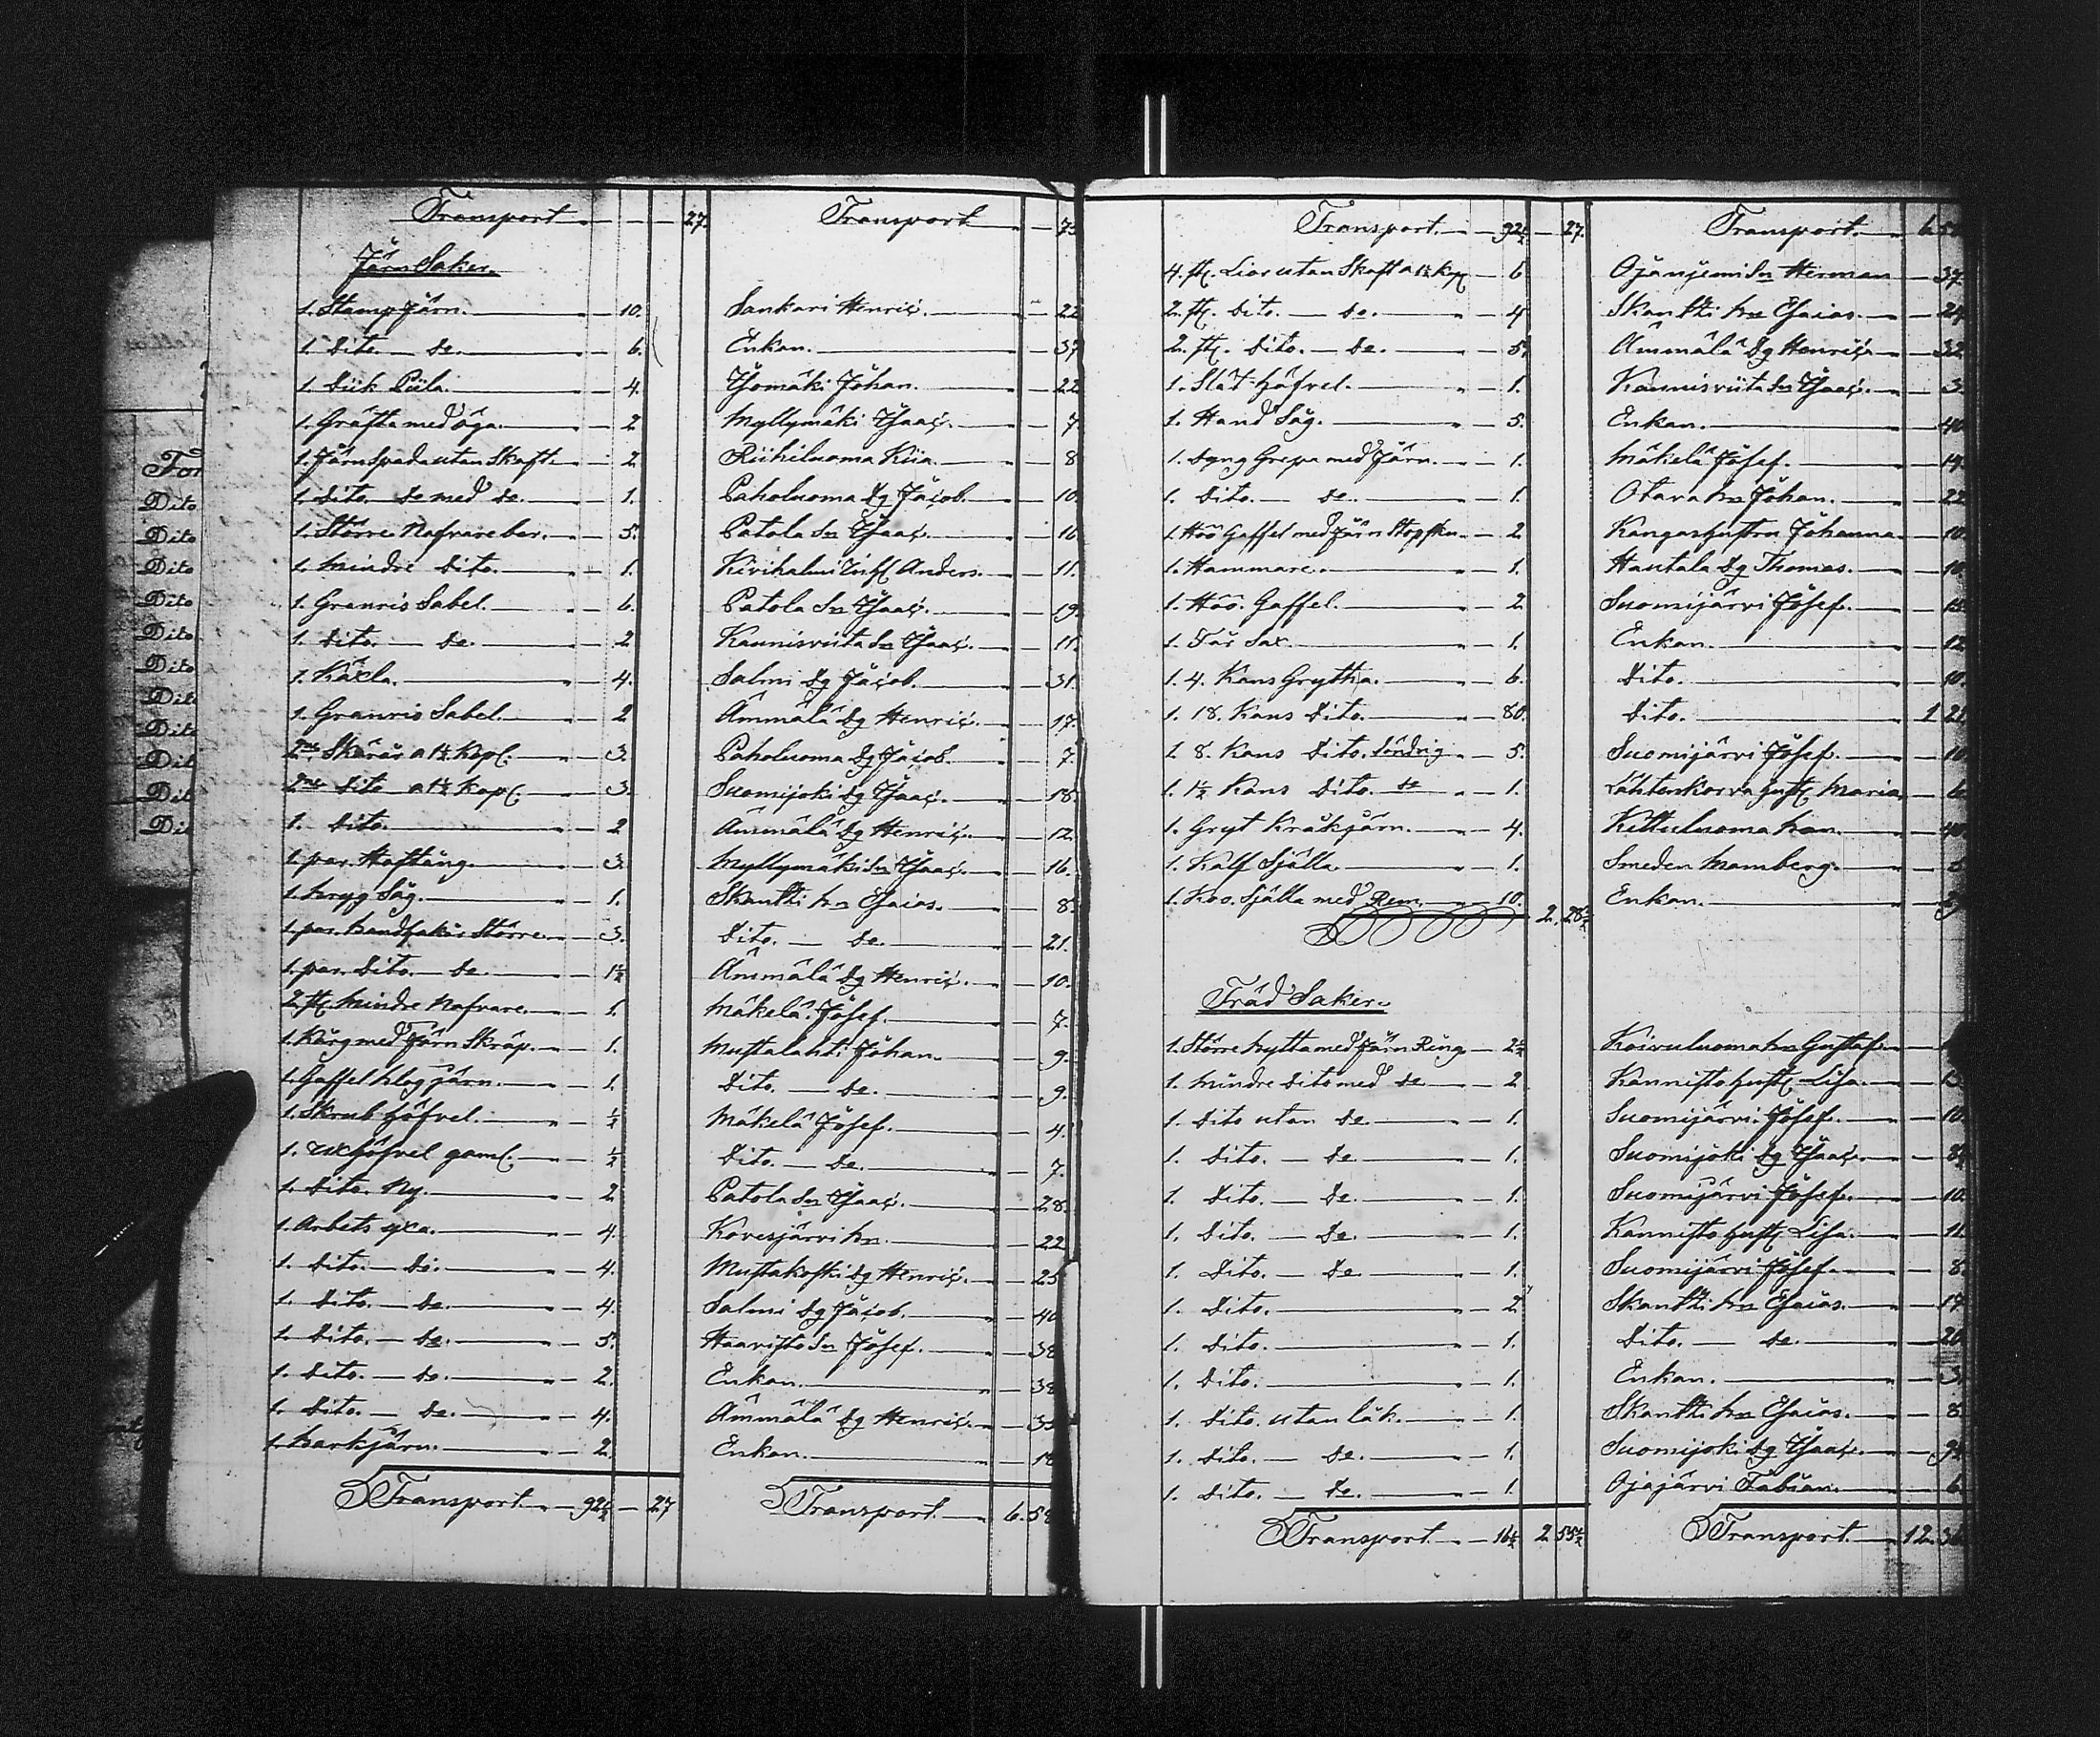 Transport 27. Transport 73
Järn Saker.
1. Stamp Järn. 10. Sankari Henric. 22
1. Dito. de. 6. Enkan. 37
1. Diik Piila. 4. Isomäki Johan. 22
1. Gräfta med öga. 2. Myllymäki Isaac. 7
1. Järn Spada utan Skaft. 2. Riihiluoma Kiia. 8
1. Dito de med de. 1. Paholuoma Dg Jacob. 10.
1. Större Nafvare bor. 5. Patola Sn Isaac. 16
1. Mindre Dito. 1. Kivihalmi Anders. 11.
1. Granris Sabel. 6. Patola Sn Isaac. 19.
1. Dito. de. 2 Kaunisviita Sn Isaac. 11.
1. Käxla. 4. Salmi Dg Jacob. 31.
1. Granris Sabel. 2 Ämmälä Dg Henric. 17.
2ne Skäror a 1½ Kop. 3. Paholuoma Dg Jacob. 7.
2ne Dito a 1½ Kop. 3. Suomijoki Dg Isaac. 18.
1. Dito. 2 Ämmälä Dg Henric. 12.
1. par. Hoftång. 3. Myllymäki Sn Isaac. 16.
1. Såg. 1. Skantti hn Esaias. 8.
1. par. Större. 3. Dito. de. 21.
1. par. Dito. de. 1½ Ämmälä Dg Henric. 10.
2 st. Mindre Nafvare. 1. Mäkelä Josef. 7.
1. Kårg med Järn Skräp. 1. Mustalahti Johan. 9.
1. Gaffel Plog järn. 1. Dito. de. 9.
1. Skrub Höfvel. ½ Mäkelä Josef. 4.
1. höfvel gaml. ½ Dito. de. 7.
1. Dito. Ny. 2. Patola Sn Isaac. 28.
1. Arbets yxa. 4. Kovesjärvi hn. 22
1. Dito. de. 4. Mustakoski Dg Henric. 25
1. Dito. de. 4. Salmi Dg Jacob. 40
1. Dito. de. 5. Haavisto Sn Josef. 38
1. Dito. de. 2. Enkan. 38
1. Dito. de. 4. Ämmälä Dg Henric. 35
1. Barkjärn. 2. Enkan. 18
Transport 92½ 27 Transport. 6. 58
Transport. 92½ 27. Transport. 6 58
4. st. Liar utan Skaft a 1½ Kop 6 Ojanjemi Sn Herman 37.
2. st. Dito. de. 4 Skantti hn Esaias. 24
2. st. Dito. de. 5 Ämmälä Dg Henric 32
1. Slät Höfvel. 1. Kaunisviita Sn Isaac. 3.
1. Hand Såg. 5. Enkan. 40
1. Dyng Grepa med Järn. 1. Mäkelä Josef. 14.
1. Dito. de. 1. Otava hn Johan. 22
1. Höö Gaffel med Järn 2. Kangas Johanna. 10.
1. Hammare. 1. Hautala Dg Thomas. 10.
1. Höö. Gaffel. 2 Suomijärvi Josef.
1. Får Sax. 1. Enkan. 12
1. 4. Kans Grytha. 6. Dito. 10.
1. 18. Kans Dito. 80. Dito. 1 22
1. 8. Kans Dito. Söndrig 5. Suomijärvi Josef. 10
1. 1½ Kans Dito. de 1. Lähtenkorva Maria. 6.
1. Gryt Kråkjärn. 4. Kittuluoma 40
1. Kalf Själla. 1. Smeden Mamberg.
1. Koo. Själla med Rem. 10. Enkan.
2. 28½
Träd Saker.
1. Större Bytta med Järn Ring. 2½ Koivuluoma hn Gustaf.
1. Mindre Dito med de 2 Kannisto Lisa.
1. Dito utan de. 1. Suomijärvi Josef. 10.
1. Dito. de. 1. Suomijoki Dg Isaac. 8½
1. Dito. de. 1. Suomijärvi Josef. 10.
1. Dito. de. 1. Kannisto Lisa. 11.
1. Dito. de. 1. Suomijärvi Josef. 8.
1. Dito. 2. Skantti hn Esaias. 17
1. Dito. 1. Dito. de. 20.
1. Dito. 1. Enkan. 3.
1. Dito. utan låk. 1. Skantti hn Esaias. 8.
1. Dito. de. 1. Suomijoki Dg Isaac. 9½
1. Dito. de. 1 Ojajärvi Fabian. 6.
Transport. 16½ 2 55½ Transport. 12. 36
For
Dito
Dito
Dito
Dito
Dito
Dito
Dit
Dito
Dit
Dit
Dit